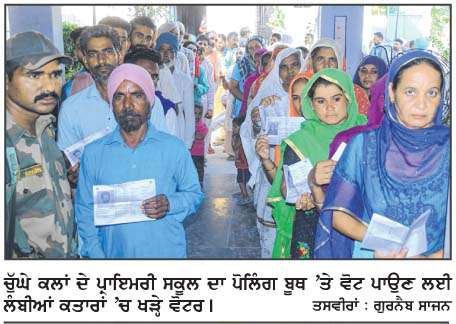 ਚੁੱਘੇ ਕਲਾਂ ਦੇ ਪ੍ਰਾਇਮਰੀ ਸਕੂਲ ਦਾ ਪੋਲਿੰਗ ਬੂਥ ’ਤੇ ਵੋਟ ਪਾਉਣ ਲਈ
ਲੰਬੀਆਂ ਕਤਾਰਾਂ ’ਚ ਖੜ੍ਹੇ ਵੋਟਰ। ਤਸਵੀਰਾਂ : ਗੁਰਨੈਬ ਸਾਜਨ